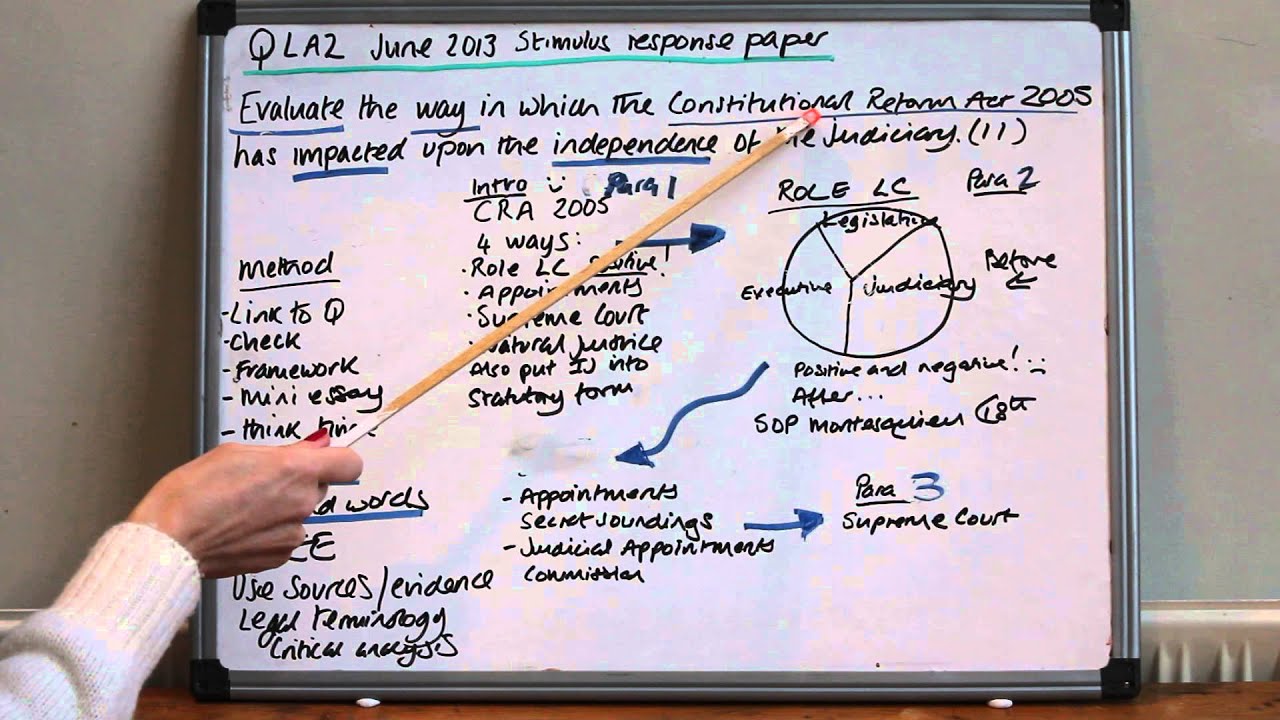 Q LA2 June 2013 Stimulus response paper
Evaluate the way in which the Constitutional Reform Act 2005
has impacted upon the independence of the Judiciary. (11)
Method
- Link to Q
- Check
- Framework
- Mini essay
- think
words
Use sources/evidence
Legal terminology
Critical analysis
Intro Para 1
CRA 2005
4 ways:
· Role LC positive!
· Appointments
· Supreme Court
· Natural Justice
Also put IJ into
Statutory form
ROLE LC Para 2
Legislative
Executive Judiciary
Before
Positive and negative!
After...
SOP Montesquieu C18th
- Appointments
Secret Soundings
- Judicial Appointments
Commission
Para 3
Supreme Court